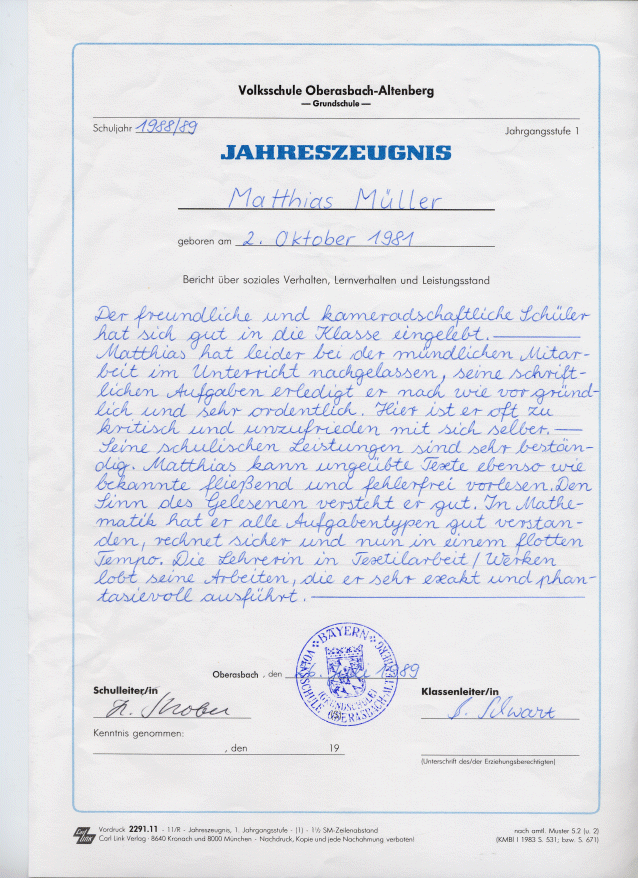 Volksschule Oberasbach-Altenberg
— Grundschule —
Schuljahr 1988/89
Jahrgangsstufe 1
JAHRESZEUGNIS
Matthias Müller
geboren am 2. Oktober 1981
Bericht über soziales Verhalten, Lernverhalten und Leistungsstand
Der freundliche und kameradschaftliche Schüler
hat sich gut in die Klasse eingelebt.
Matthias hat leider bei der mündlichen Mitar-
beit im Unterricht nachgelassen, seine schrift-
lichen Aufgaben erledigt er nach wie vor gründ-
lich und sehr ordentlich. Hier ist er oft zu
kritisch und unzufrieden mit sich selber.
Seine schulischen Leistungen sind sehr bestän-
dig. Matthias kann ungeübte Texte ebenso wie
bekannte fließend und fehlerfrei vorlesen. Den
Sinn des Gelesenen versteht er gut. In Mathe-
matik hat er alle Aufgabentypen gut verstan-
den, rechnet sicher und nun in einem flotten
Tempo. Die Lehrerin in Textilarbeit / Werken
lobt seine Arbeiten, die er sehr exakt und phan-
tasievoll ausführt.
BAYERN
VOLKSSCHULE OBERASBACH-ALTENBERG
(GRUNDSCHULE)
Oberasbach, den 1989
Schulleiter/in
Klassenleiter/in
Kenntnis genommen:
, den 19
(Unterschrift des/der Erziehungsberechtigten)
Carl Link Vordruck 2291.11 - 11/R - Jahreszeugnis, 1. Jahrgangsstufe - (1) - 1½ SM-Zeilenabstand
Carl Link Verlag · 8640 Kronach und 8000 München - Nachdruck, Kopie und jede Nachahmung verboten!
nach amtl. Muster 5.2 (u. 2)
(KMBl I 1983 S. 531; bzw. S. 671)